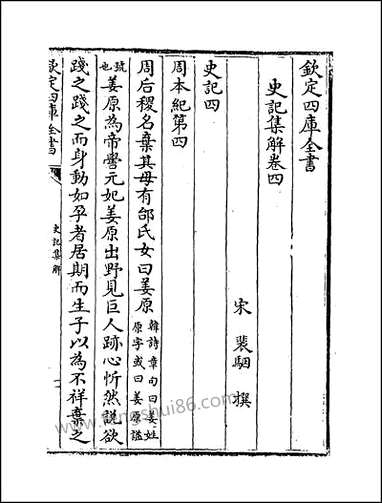 欽定四庫全書
史記集解卷四
宋 裴駰 撰
史記四
周本紀第四
周后稷名棄其母有邰氏女曰姜原韓詩章句曰姜姓原字或曰姜原諡
號也姜原為帝嚳元妃姜原出野見巨人跡心忻然說欲
踐之踐之而身動如孕者居期而生子以為不祥棄之
欽定四庫全書
史記集解